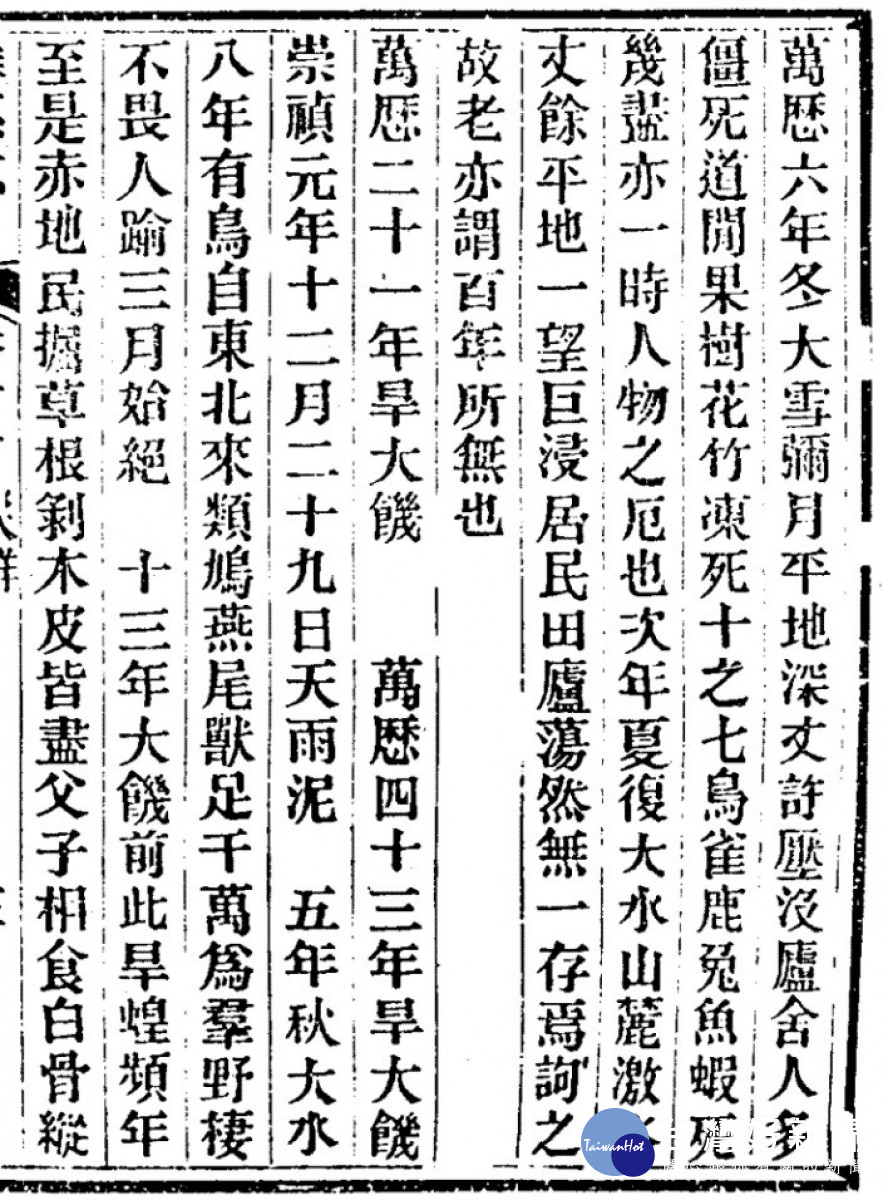 萬歷六年冬大雪彌月平地深丈許壓沒廬舍人多
僵死道間果樹花竹凍死十之七鳥雀鹿兔魚蝦死
幾盡亦一時人物之厄也次年夏復大水山麓激
丈餘平地一望巨浸居民田廬蕩然無一存焉詞之
故老亦謂百年所無也
萬歷二十一年旱大饑 萬歷四十三年旱大饑
崇禎元年十二月二十九日天雨泥 五年秋大水
八年有鳥自東北來類鳩燕尾獸足千萬爲羣野棲
不畏人踰三月始絕 十三年大饑前此旱蝗頻年
至是赤地民掘草根剝木皮皆盡父子相食白骨縱
TaiwanHot